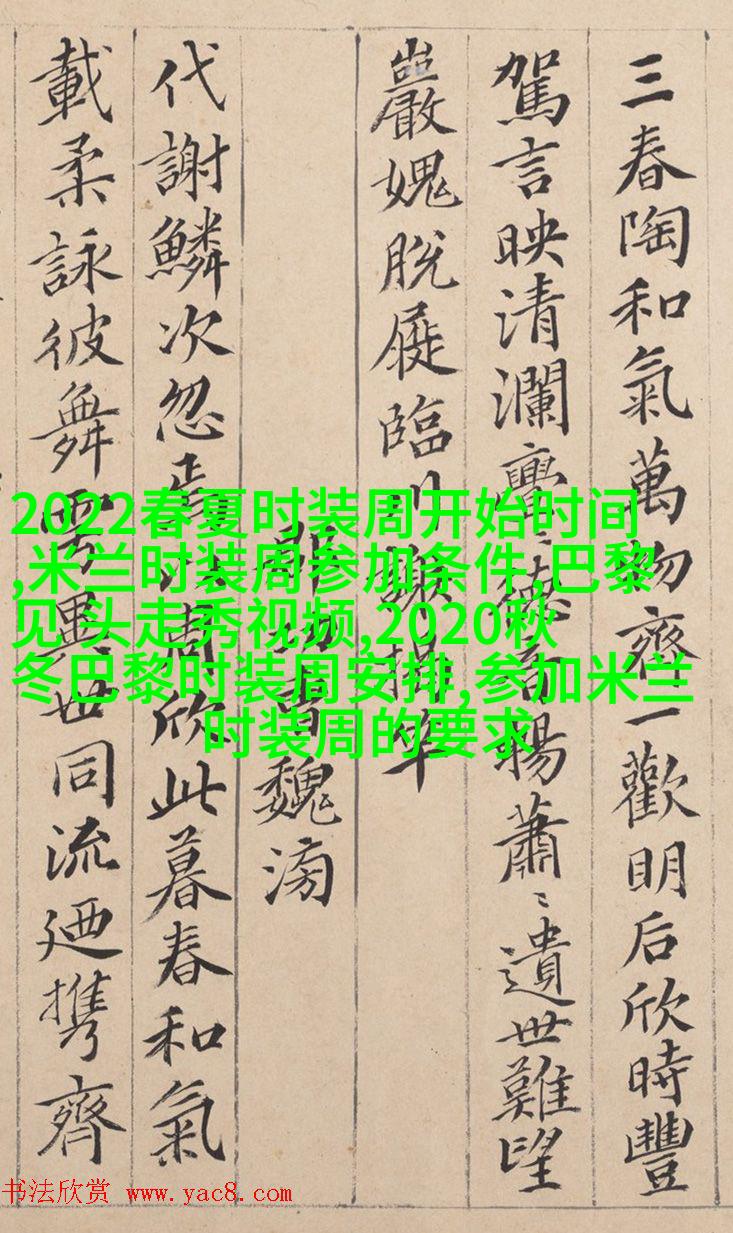 三春陶和氣萬物齊一歡明后欣時豐
駕言映清瀾亹〻德音暢蕭〻遺世難望
巖愧脫屣臨川謝揭竿
郡功曹魏滂
代謝鱗次忽焉以周欣此暮春和氣
載柔詠彼舞雩異世同流廼携齊
2022春夏时装周开始时间
,米兰时装周参加条件,巴黎
见 头走秀视频,2020秋
冬巴黎时装周安排,参加米兰
时装周的要求
书法欣赏 www.yac8.com